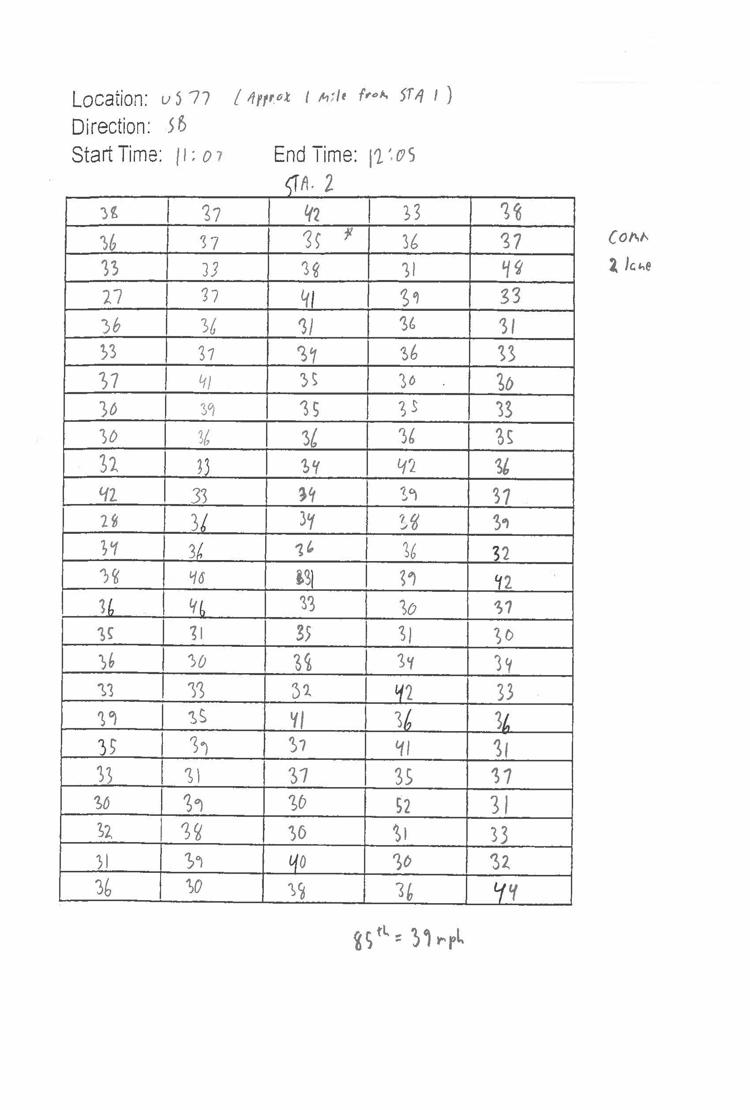 Location: US 77 (Approx 1 Mile from STA 1)
Direction: SB
Start Time: 11:07 End Time: 12:05
STA. 2
38 37 42 33 38
36 37 35 * 36 37
33 33 38 31 48
27 37 41 39 33
36 36 31 36 31
33 37 34 36 33
37 41 35 30 30
30 39 35 35 33
30 36 36 36 35
32 33 34 42 36
42 33 34 39 37
28 36 34 38 39
34 36 36 36 32
38 40 31 39 42
36 46 33 30 37
35 31 35 31 30
36 30 38 34 34
33 33 32 42 33
39 35 41 36 36
35 39 37 41 31
33 31 37 35 37
30 39 30 52 31
32 38 30 31 33
31 39 40 30 32
36 30 38 36 44
2 lane
85th = 39 mph